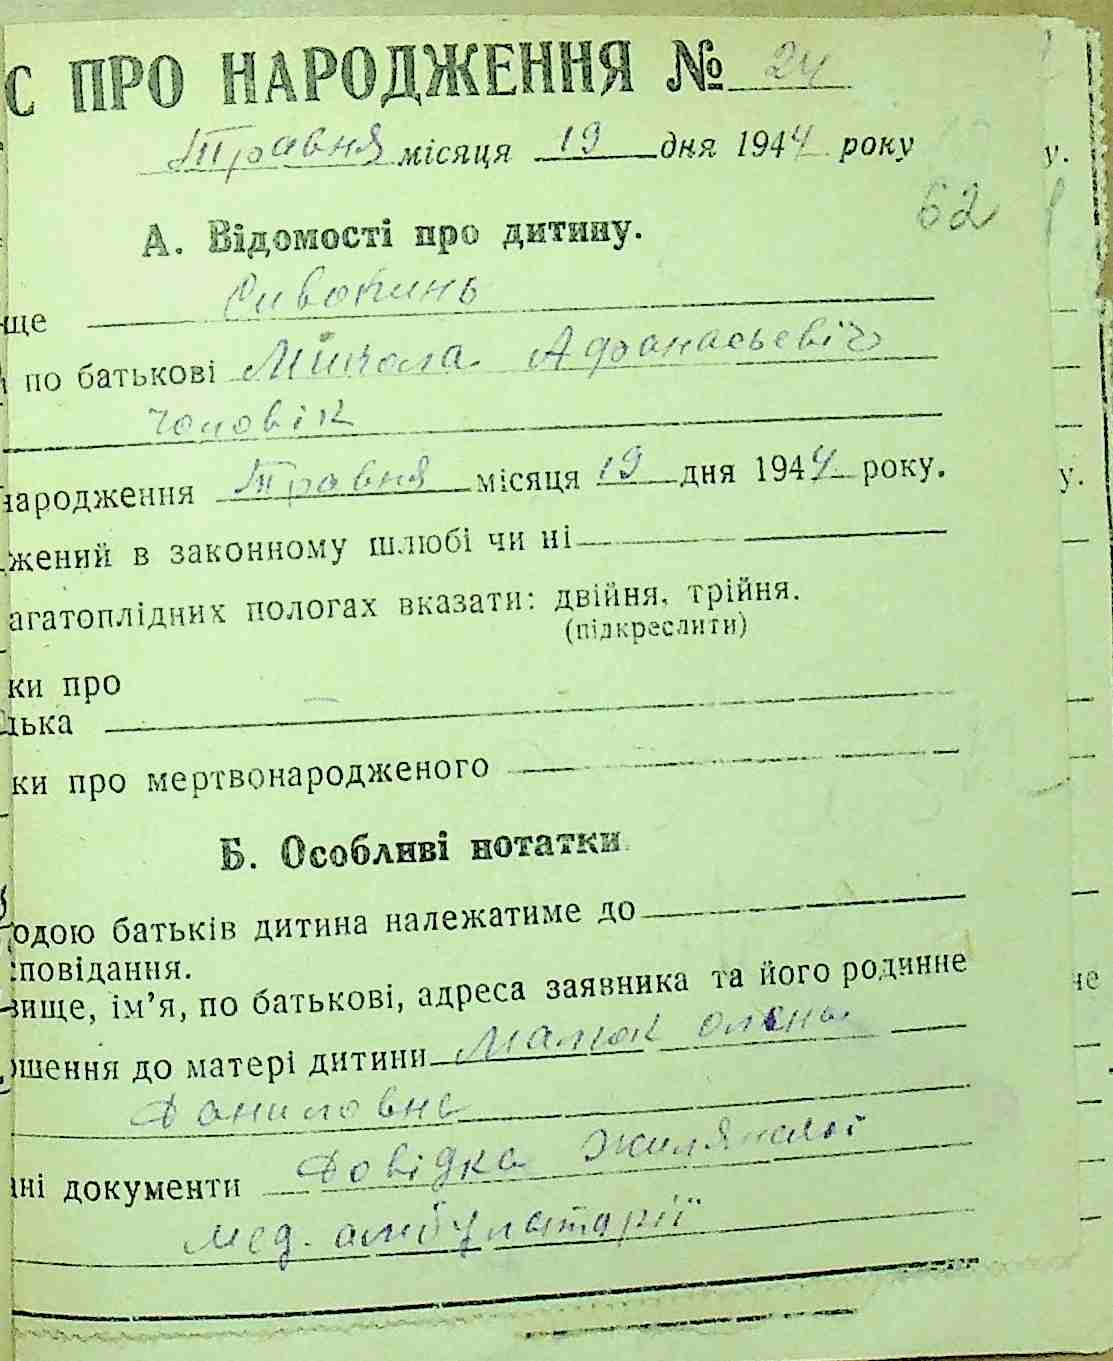 С ПРО НАРОДЖЕННЯ № 24
Травня місяця 19 дня 1944 року
62
А. Відомості про дитину.
ще Сивокинь
по батькові Микола Афонасьевіч
чоловік
народження Травня місяця 19 дня 1944 року.
жений в законному шлюбі чи ні
агатоплідних пологах вказати: двійня, трійня.
(підкреслити)
ки про
дька
ки про мертвонародженого
Б. Особливі нотатки
одою батьків дитина належатиме до
сповідання.
вище, ім'я, по батькові, адреса заявника та його родинне
ошення до матері дитини Малюк олена
Даниловна
ані документи Довідка Жилянської
мед. амбулаторії